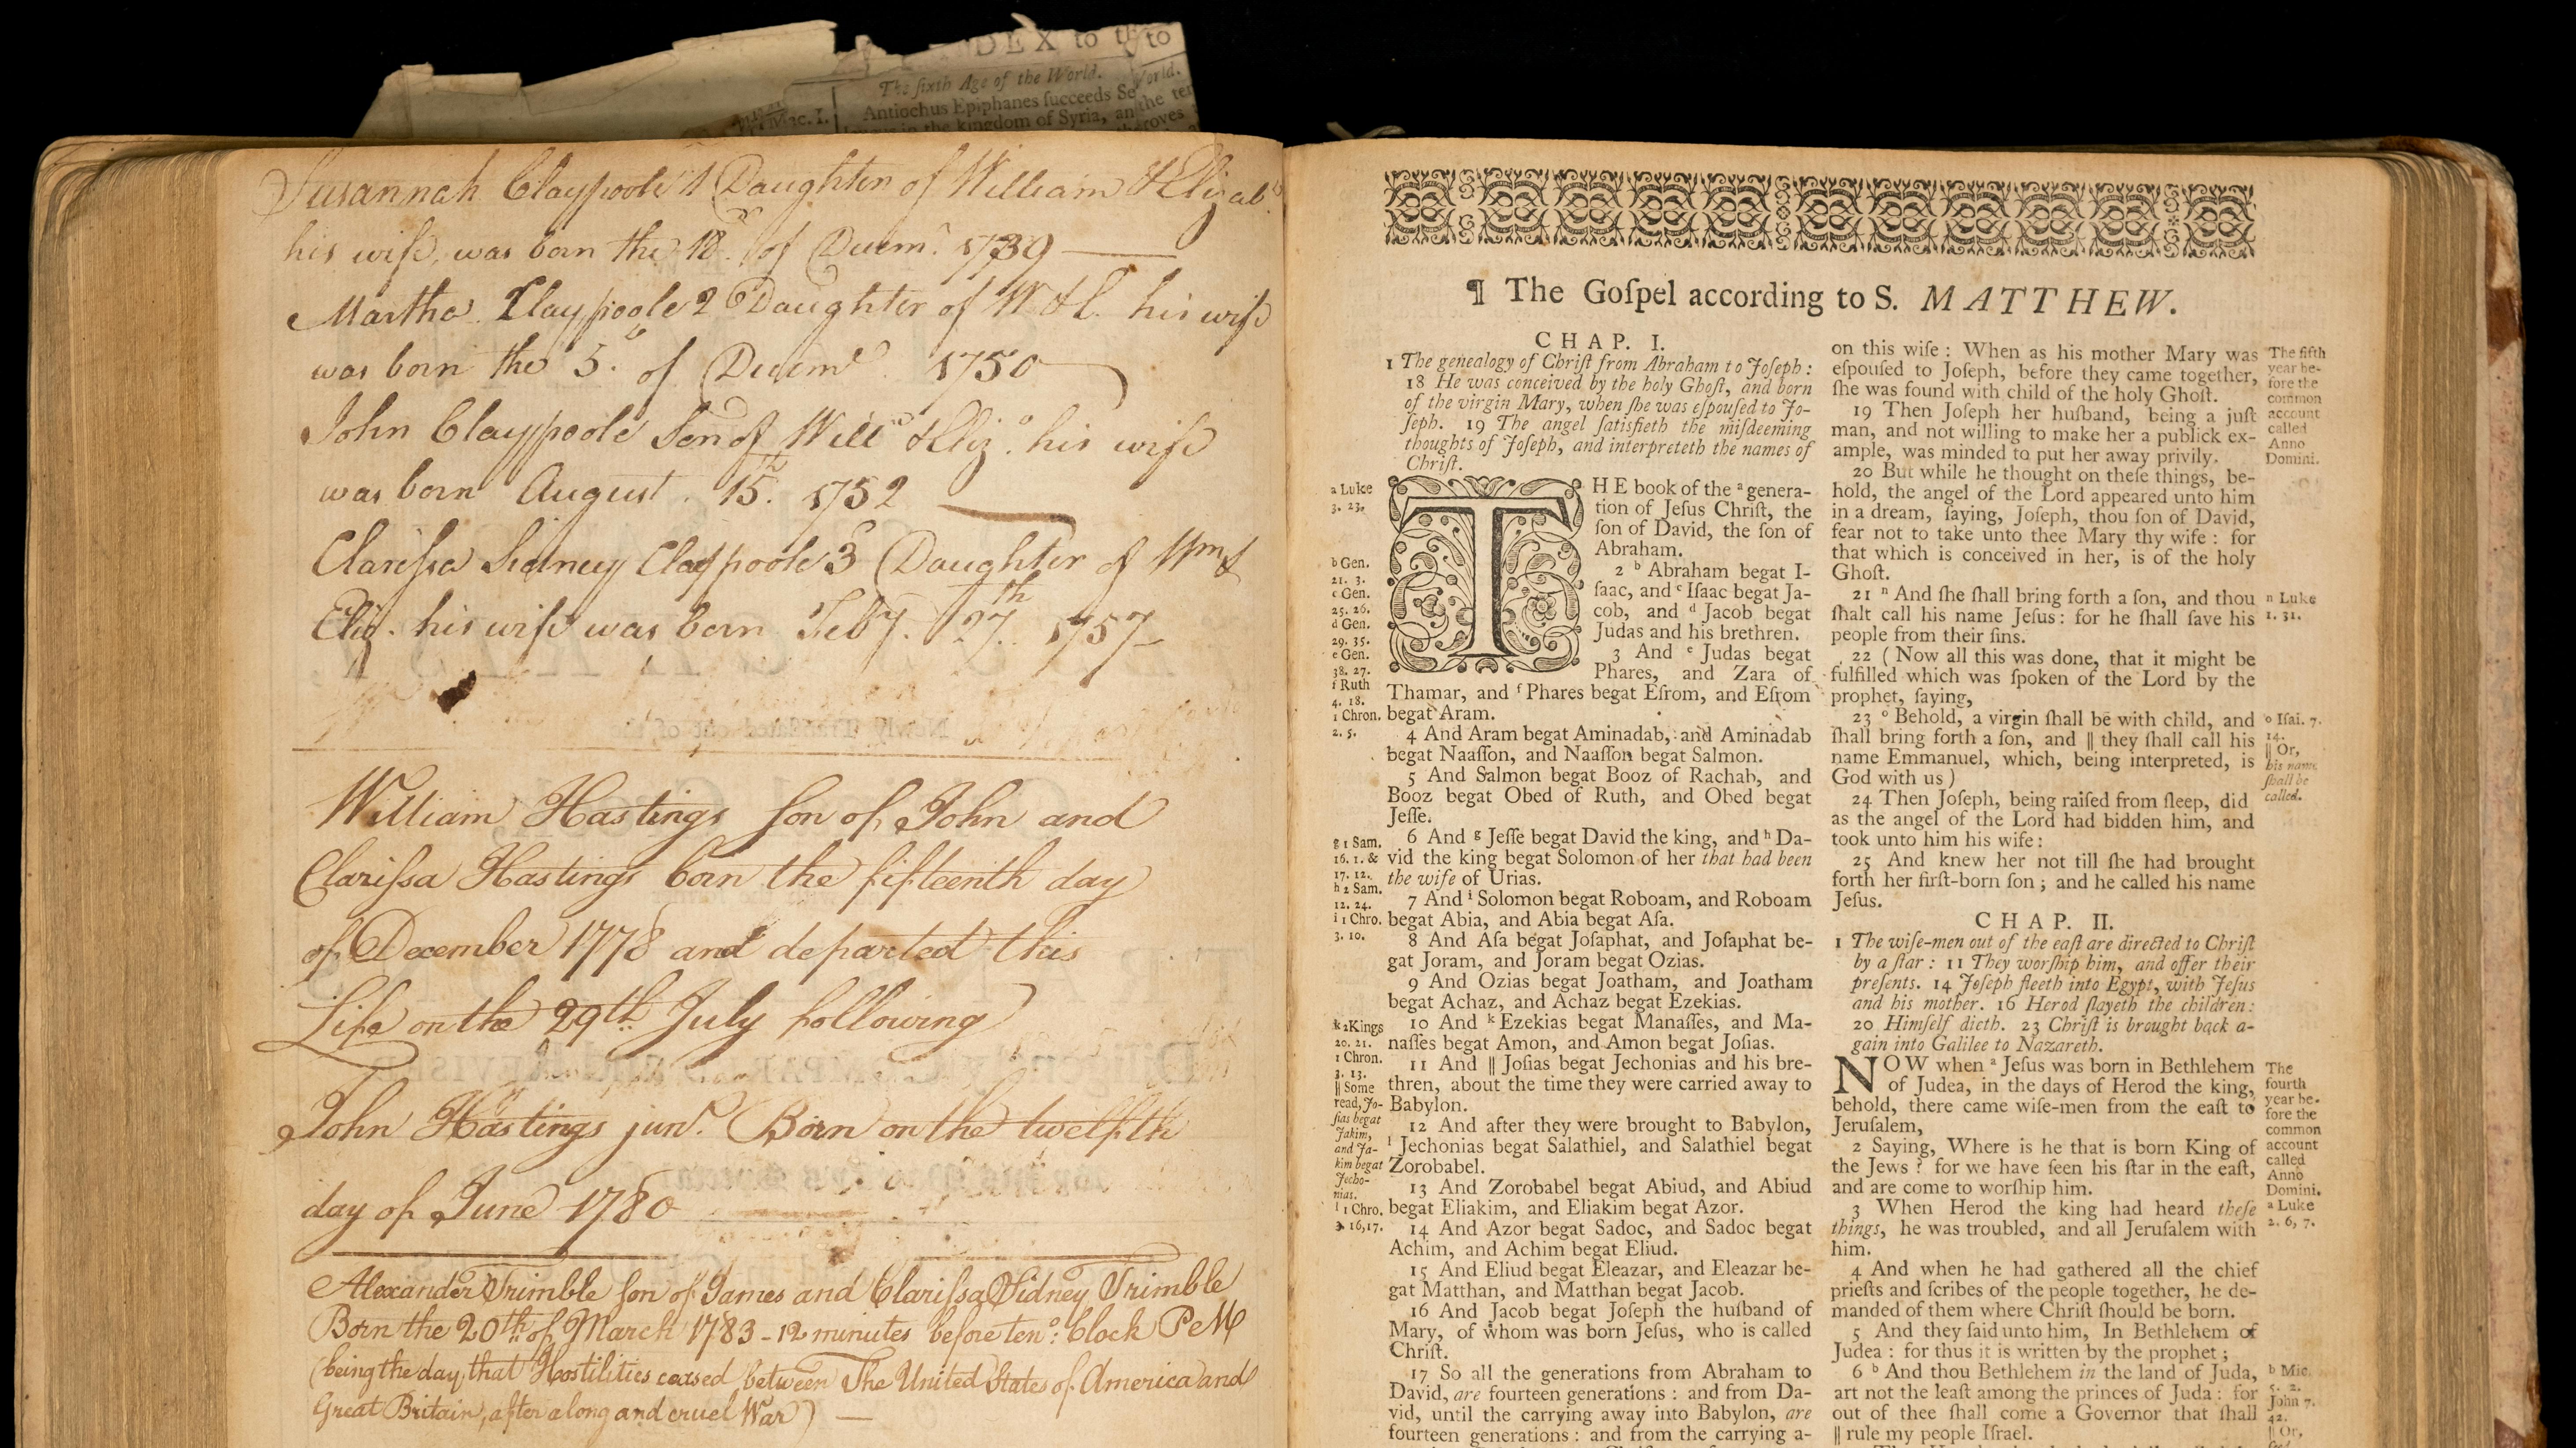 DEX to th to
The ſixth Age of the World.
World.
Antiochus Epiphanes ſucceeds Se
the ter
Mac. I.
in the kingdom of Syria, an
roves
Susannah Claypoole 1 Daughter of William & Elizab.
his wife, was born the 18. of Decem.r 1739
Martha Claypoole 2 Daughter of W & E. his wife
was born the 5. of Decemr. 1750
John Claypoole Son of Will & Eliz. his wife
was born August 15. 1752
Clariſsa Sidney Claypoole 3 Daughter of Wm &
Eliz. his wife was born Feby. 27th 1757
William Hastings ſon of John and
Clariſsa Hastings born the fifteenth day
of December 1778 and departed this
Life on the 29th July following
John Hastings junr. Born on the twelfth
day of June 1780
Alexander Trimble ſon of James and Clariſsa Sidney Trimble
Born the 20th of March 1783 - 12 minutes before ten o: Clock PeM
(being the day, that Hostilities ceased between The United States of America and
Great Britain, after a long and cruel War) —
¶ The Goſpel according to S. MATTHEW.
CHAP. I.
1 The genealogy of Chriſt from Abraham to Joſeph:
18 He was conceived by the holy Ghoſt, and born
of the virgin Mary, when ſhe was eſpouſed to Jo-
ſeph. 19 The angel ſatisfieth the miſdeeming
thoughts of Joſeph, and interpreteth the names of
Chriſt.
a Luke
3. 23.
THE book of the a genera-
tion of Jeſus Chriſt, the
ſon of David, the ſon of
Abraham.
b Gen.
21. 3.
c Gen.
25. 26.
d Gen.
29. 35.
e Gen.
38. 27.
f Ruth
4. 18.
1 Chron.
2. 5.
2 b Abraham begat I-
ſaac, and c Iſaac begat Ja-
cob, and d Jacob begat
Judas and his brethren.
3 And e Judas begat
Phares, and Zara of
Thamar, and f Phares begat Eſrom, and Eſrom
begat Aram.
4 And Aram begat Aminadab, and Aminadab
begat Naaſſon, and Naaſſon begat Salmon.
5 And Salmon begat Booz of Rachab, and
Booz begat Obed of Ruth, and Obed begat
Jeſſe.
g 1 Sam.
16. 1. &
17. 12.
h 2 Sam.
12. 24.
i 1 Chro.
3. 10.
6 And g Jeſſe begat David the king, and h Da-
vid the king begat Solomon of her that had been
the wife of Urias.
7 And i Solomon begat Roboam, and Roboam
begat Abia, and Abia begat Aſa.
8 And Aſa begat Joſaphat, and Joſaphat be-
gat Joram, and Joram begat Ozias.
9 And Ozias begat Joatham, and Joatham
begat Achaz, and Achaz begat Ezekias.
k 2 Kings
20. 21.
1 Chron.
3. 13.
|| Some
read, Jo-
ſias begat
Jakim,
and Ja-
kim begat
Jecho-
nias.
l 1 Chro.
3. 16, 17.
10 And k Ezekias begat Manaſſes, and Ma-
naſſes begat Amon, and Amon begat Joſias.
11 And || Joſias begat Jechonias and his bre-
thren, about the time they were carried away to
Babylon.
12 And after they were brought to Babylon,
l Jechonias begat Salathiel, and Salathiel begat
Zorobabel.
13 And Zorobabel begat Abiud, and Abiud
begat Eliakim, and Eliakim begat Azor.
14 And Azor begat Sadoc, and Sadoc begat
Achim, and Achim begat Eliud.
15 And Eliud begat Eleazar, and Eleazar be-
gat Matthan, and Matthan begat Jacob.
16 And Jacob begat Joſeph the huſband of
Mary, of whom was born Jeſus, who is called
Chriſt.
17 So all the generations from Abraham to
David, are fourteen generations: and from Da-
vid, until the carrying away into Babylon, are
fourteen generations: and from the carrying a-
on this wiſe: When as his mother Mary was
eſpouſed to Joſeph, before they came together,
ſhe was found with child of the holy Ghoſt.
19 Then Joſeph her huſband, being a juſt
man, and not willing to make her a publick ex-
ample, was minded to put her away privily.
20 But while he thought on theſe things, be-
hold, the angel of the Lord appeared unto him
in a dream, ſaying, Joſeph, thou ſon of David,
fear not to take unto thee Mary thy wife: for
that which is conceived in her, is of the holy
Ghoſt.
The fifth
year be-
fore the
common
account
called
Anno
Domini.
21 n And ſhe ſhall bring forth a ſon, and thou
ſhalt call his name Jeſus: for he ſhall ſave his
people from their ſins.
n Luke
1. 31.
22 (Now all this was done, that it might be
fulfilled which was ſpoken of the Lord by the
prophet, ſaying,
23 o Behold, a virgin ſhall be with child, and
ſhall bring forth a ſon, and || they ſhall call his
name Emmanuel, which, being interpreted, is
God with us)
o Iſai. 7.
14.
|| Or,
his name
ſhall be
called.
24 Then Joſeph, being raiſed from ſleep, did
as the angel of the Lord had bidden him, and
took unto him his wife:
25 And knew her not till ſhe had brought
forth her firſt-born ſon; and he called his name
Jeſus.
CHAP. II.
1 The wiſe-men out of the eaſt are directed to Chriſt
by a ſtar: 11 They worſhip him, and offer their
preſents. 14 Joſeph fleeth into Egypt, with Jeſus
and his mother. 16 Herod ſlayeth the children:
20 Himſelf dieth. 23 Chriſt is brought back a-
gain into Galilee to Nazareth.
NOW when a Jeſus was born in Bethlehem
of Judea, in the days of Herod the king,
behold, there came wiſe-men from the eaſt to
Jeruſalem,
2 Saying, Where is he that is born King of
the Jews? for we have ſeen his ſtar in the eaſt,
and are come to worſhip him.
The
fourth
year be-
fore the
common
account
called
Anno
Domini.
a Luke
2. 6, 7.
3 When Herod the king had heard theſe
things, he was troubled, and all Jeruſalem with
him.
4 And when he had gathered all the chief
prieſts and ſcribes of the people together, he de-
manded of them where Chriſt ſhould be born.
5 And they ſaid unto him, In Bethlehem of
Judea: for thus it is written by the prophet;
6 b And thou Bethlehem in the land of Juda,
art not the leaſt among the princes of Juda: for
out of thee ſhall come a Governor that ſhall
|| rule my people Iſrael.
b Mic.
5. 2.
John 7.
42.
|| Or,